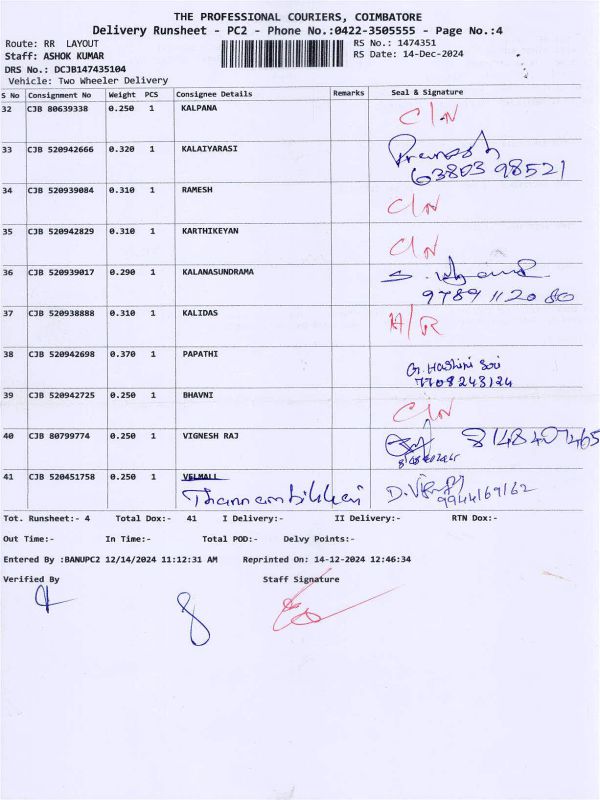 THE PROFESSIONAL COURIERS, COIMBATORE
Delivery Runsheet - PC2 - Phone No.:0422-3505555 - Page No.:4
Route: RR LAYOUT RS No.: 1474351
Staff: ASHOK KUMAR RS Date: 14-Dec-2024
DRS No.: DCJB147435104
Vehicle: Two Wheeler Delivery
S No Consignment No Weight PCS Consignee Details Remarks Seal & Signature
32 CJB 80639338 0.250 1 KALPANA C/N
33 CJB 520942666 0.320 1 KALAIYARASI
63803 98521
34 CJB 520939084 0.310 1 RAMESH C/N
35 CJB 520942829 0.310 1 KARTHIKEYAN C/N
36 CJB 520939017 0.290 1 KALANASUNDRAMA
9789 112080
37 CJB 520938888 0.310 1 KALIDAS H/R
38 CJB 520942698 0.370 1 PAPATHI G. Hashini Sri
7708243124
39 CJB 520942725 0.250 1 BHAVNI C/N
40 CJB 80799774 0.250 1 VIGNESH RAJ 8148407465
41 CJB 520451758 0.250 1 VELMALL
Thannambikkai D. Vijay
9944169162
Tot. Runsheet:- 4 Total Dox:- 41 I Delivery:- II Delivery:- RTN Dox:-
Out Time:- In Time:- Total POD:- Delvy Points:-
Entered By :BANUPC2 12/14/2024 11:12:31 AM Reprinted On: 14-12-2024 12:46:34
Verified By Staff Signature